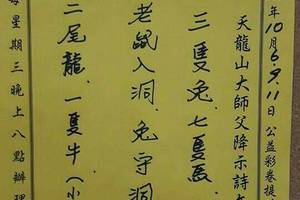 年10月6.9.11日公益彩券提
天龍山大師父降示詩
三隻兔、七隻馬、
老鼠入洞、兔守洞
二尾龍、一隻牛(小
每星期三晚上八點辦理